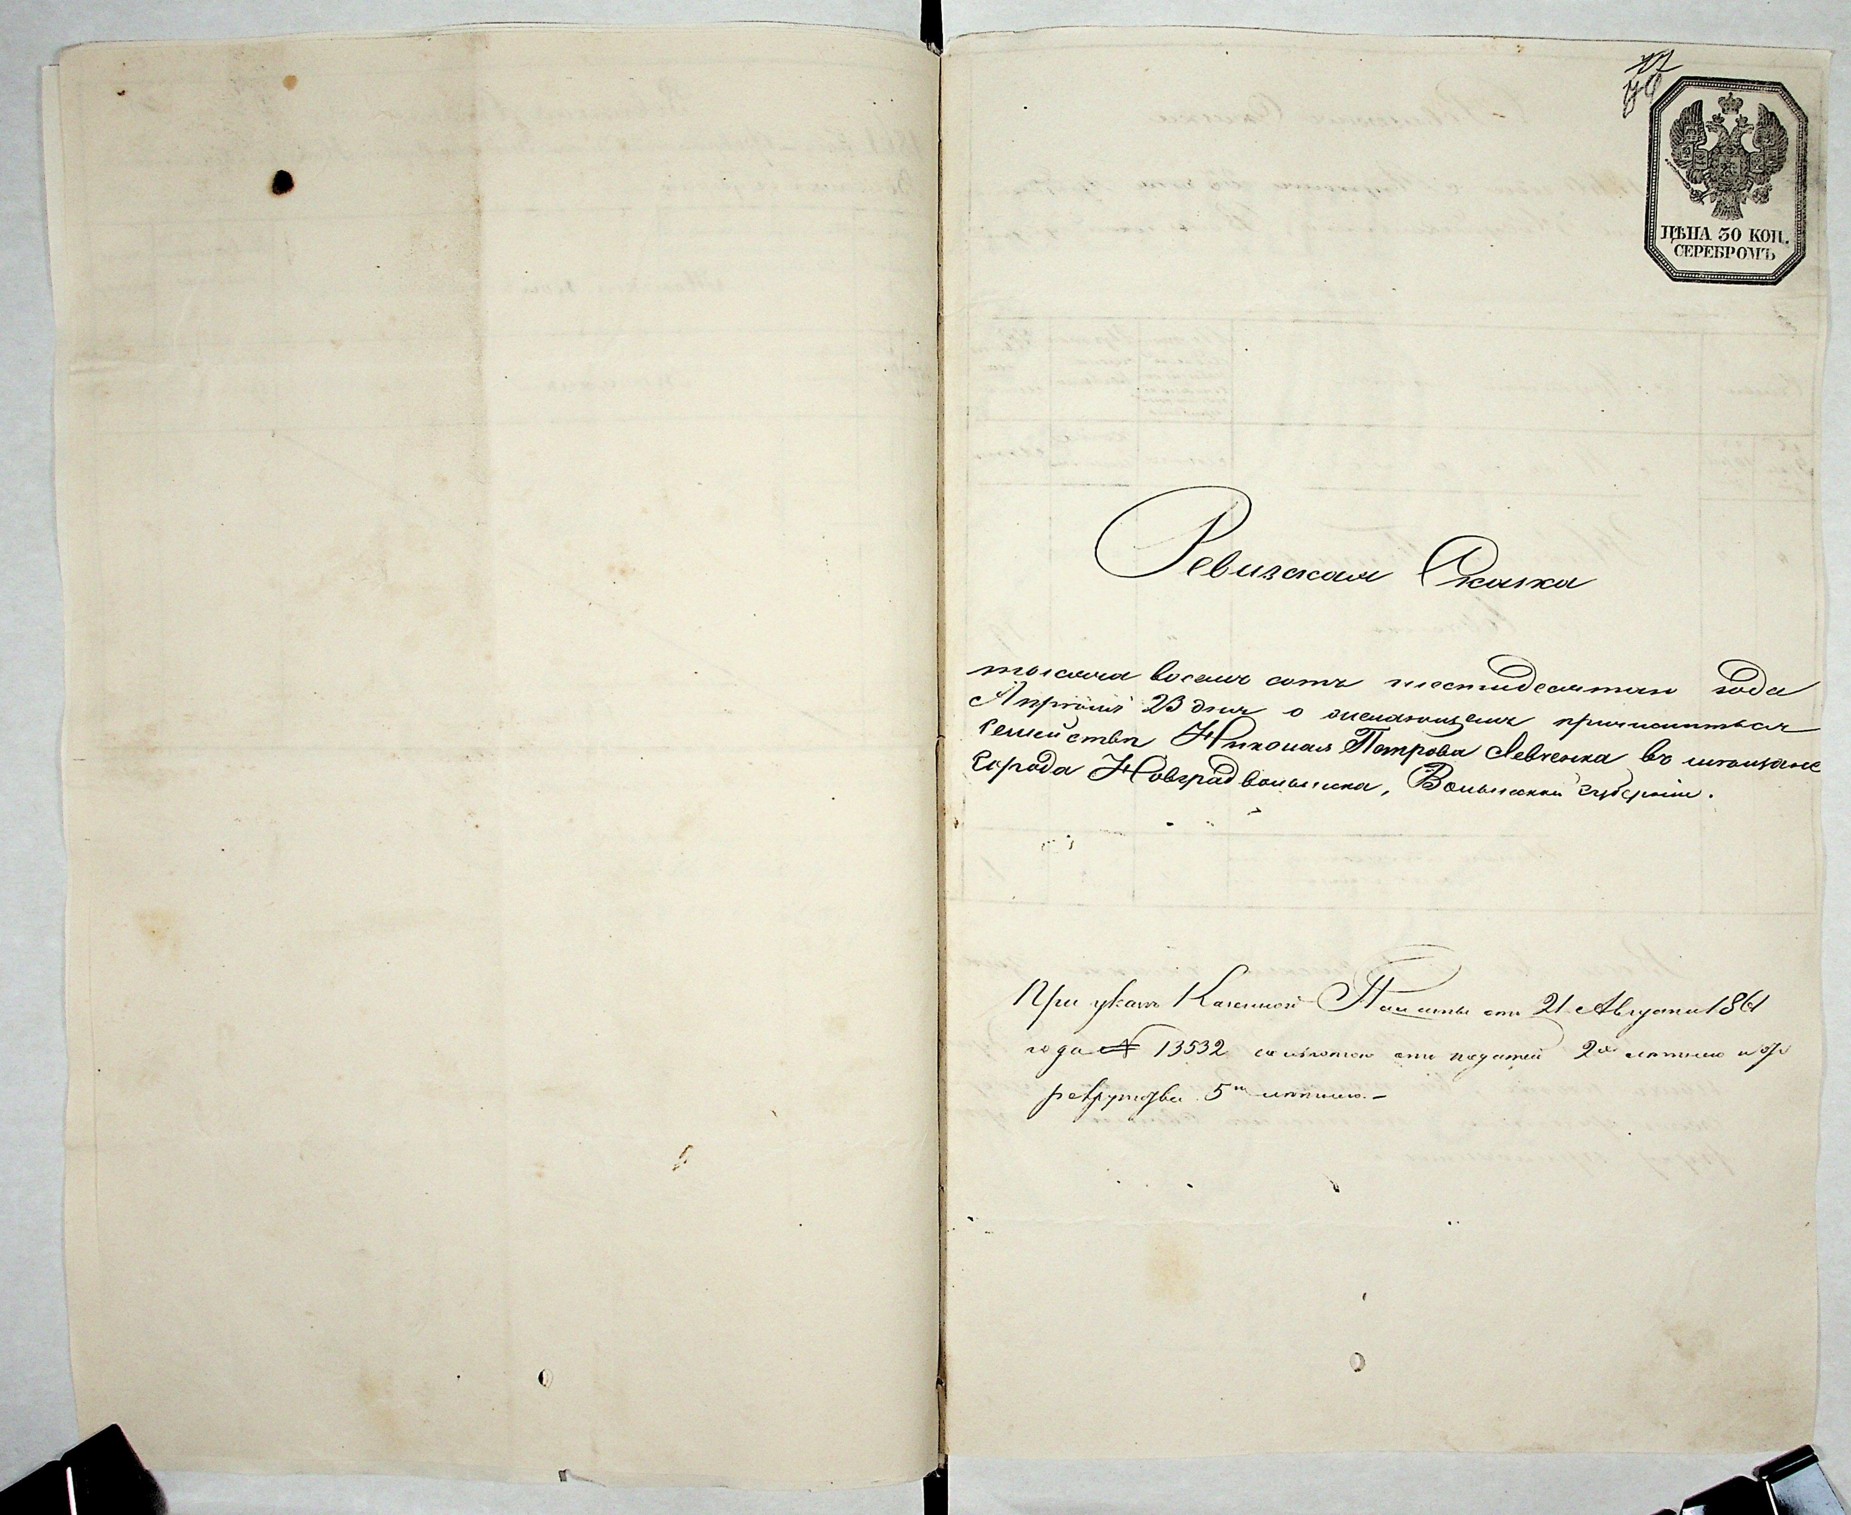 77
ЦѢНА 30 КОП.
СЕРЕБРОМЪ
Ревизская Сказка
тысяча восемь сотъ шестидесятаго года
Апрѣля 23 дня о желающемъ причислиться
семействѣ Николая Петрова Левченка въ мѣщане
города Новградволынска, Волынской губерніи.
При указѣ Казенной Палаты отъ 21 Августа 1861
года № 13532 со льготою отъ податей 2х лѣтнею и отъ
рекрутства 5ти лѣтнею.-